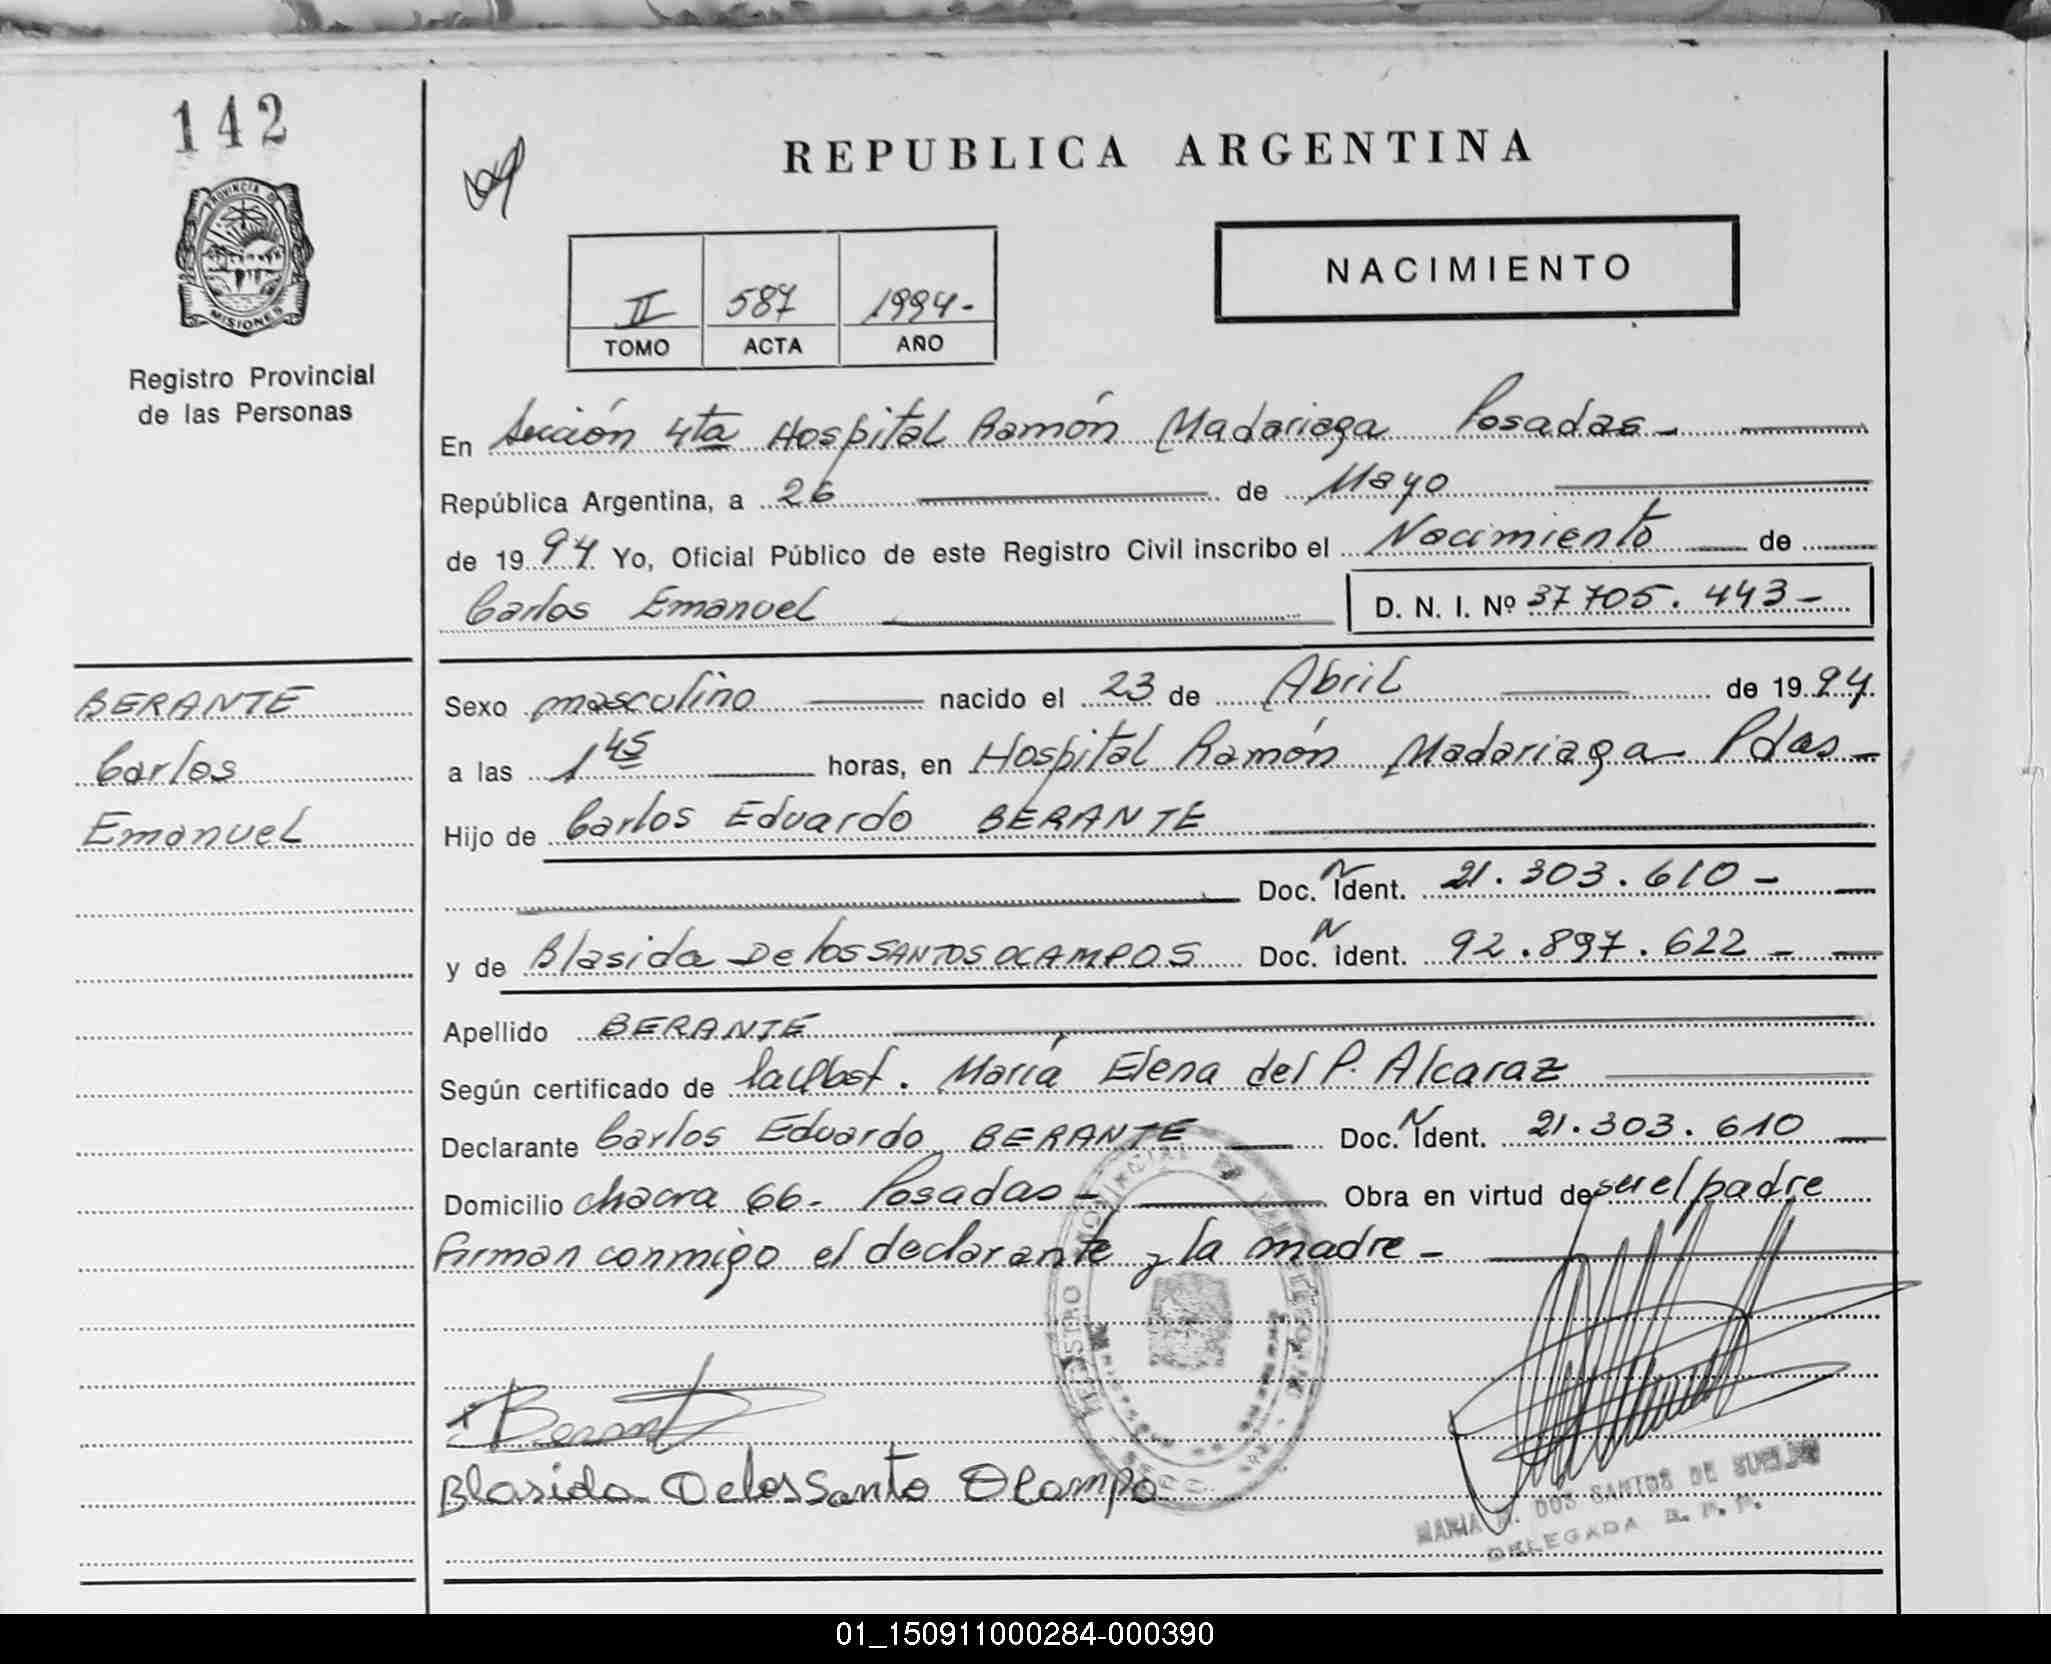 142
PROVINCIA DE
MISIONES
Registro Provincial
de las Personas
REPUBLICA ARGENTINA
NACIMIENTO
II 587 1994-
TOMO ACTA AÑO
En Sección 4ta Hospital Ramón Madariaga Posadas-
República Argentina, a 26 de Mayo
de 1994 Yo, Oficial Público de este Registro Civil inscribo el Nacimiento de
Carlos Emanuel D. N. I. Nº 37705.443-
BERANTE
Carlos
Emanuel
Sexo masculino nacido el 23 de Abril de 1994.
a las 1 45 horas, en Hospital Ramón Madariaga Pdas-
Hijo de Carlos Eduardo BERANTE
Doc. N Ident. 21.303.610-
y de Blasida De los SANTOS OCAMPOS Doc. N Ident. 92.897.622-
Apellido BERANTE
Según certificado de la Obst. María Elena del P. Alcaraz
Declarante Carlos Eduardo BERANTE Doc. N Ident. 21.303.610
Domicilio chacra 66- Posadas- Obra en virtud de ser el padre
Firman conmigo el declarante y la madre-
Blasida Delossanto Ocampo
MARIA DOS SANTOS DE
DELEGADA
01_150911000284-000390